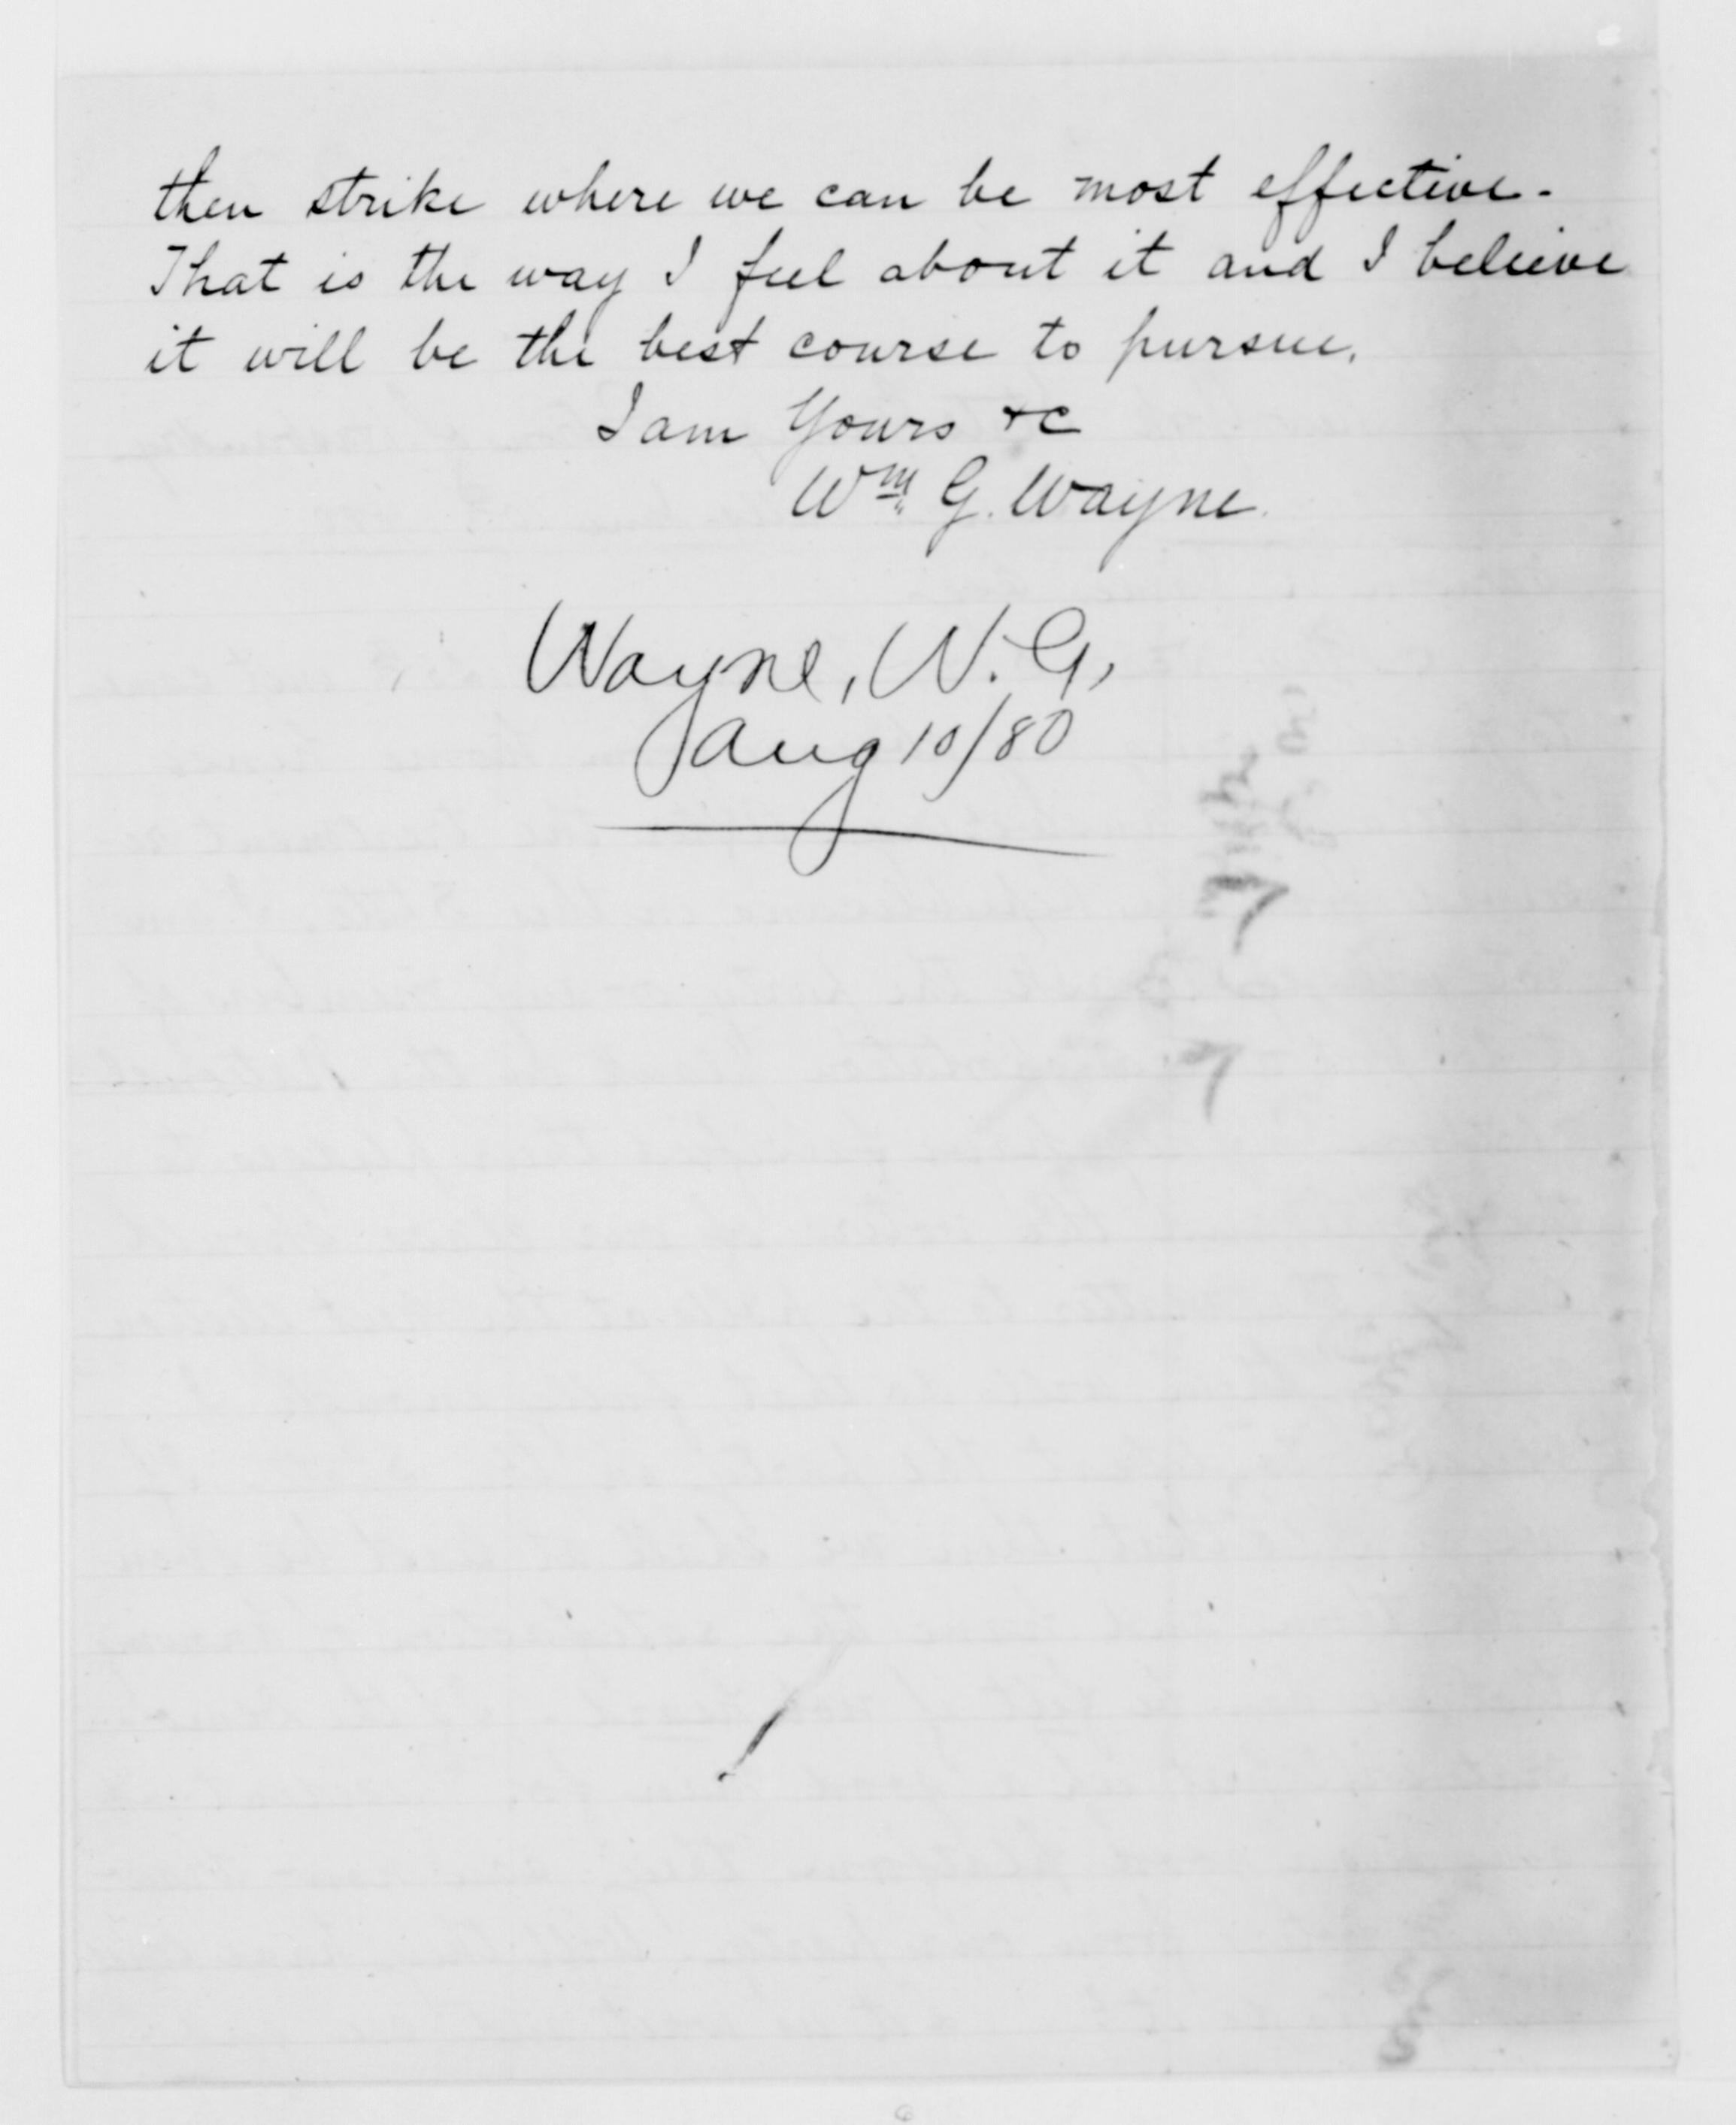 then strike where we can be most effective.
That is the way I feel about it and I believe
it will be the best course to pursue.
I am Yours &c
Wm. G. Wayne.
Wayne, W. G.
Aug 10/80